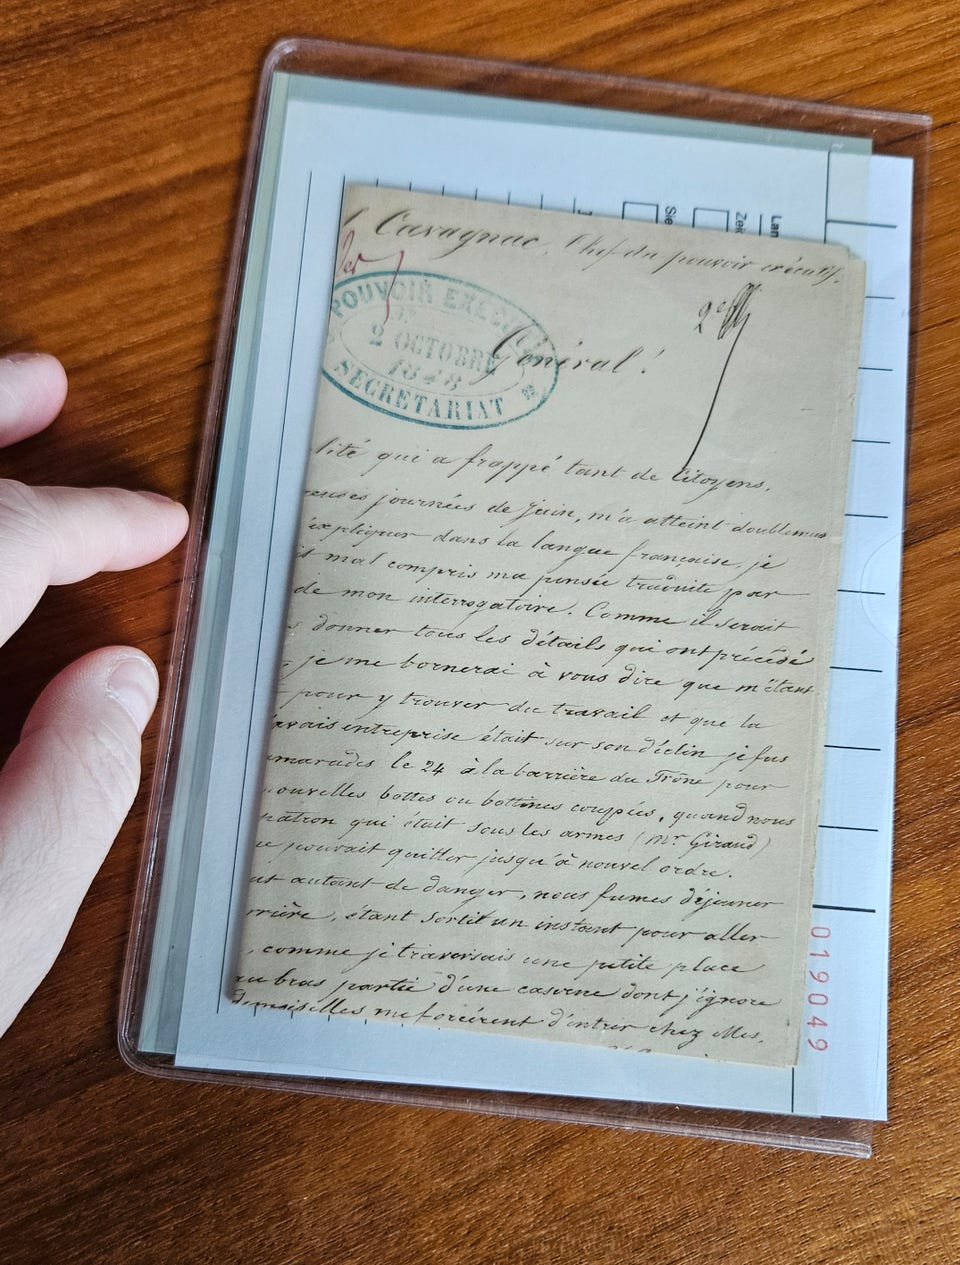 Cavagnac, Chef du pouvoir exécutif.
POUVOIR EXECU
2 OCTOBRE
1848
SECRETARIAT
2e
Général!
lité qui a frappé tant de Citoyens,
euses journées de Juin, m'a atteint doublement
expliquer dans la langue française, je
t mal compris ma pensée traduite par
de mon interrogatoire. Comme il serait
s donner tous les détails qui ont précédé
, je me bornerai à vous dire que m'étant
t pour y trouver du travail et que la
avais entreprise était sur son déclin je fus
marades le 24 à la barrière du Trône pour
ouvelles bottes ou bottines coupées, quand nous
patron qui était sous les armes (Mr Giraud)
ne pouvait quitter jusqu'à nouvel ordre.
ut autant de danger, nous fumes déjeuner
rrière, étant sortit un instant pour aller
, comme je traversais une petite place
au bras partie d'une caserne dont j'ignore
demoiselles me forcèrent d'entrer chez elles,
Lan
Zei
Sie
019049